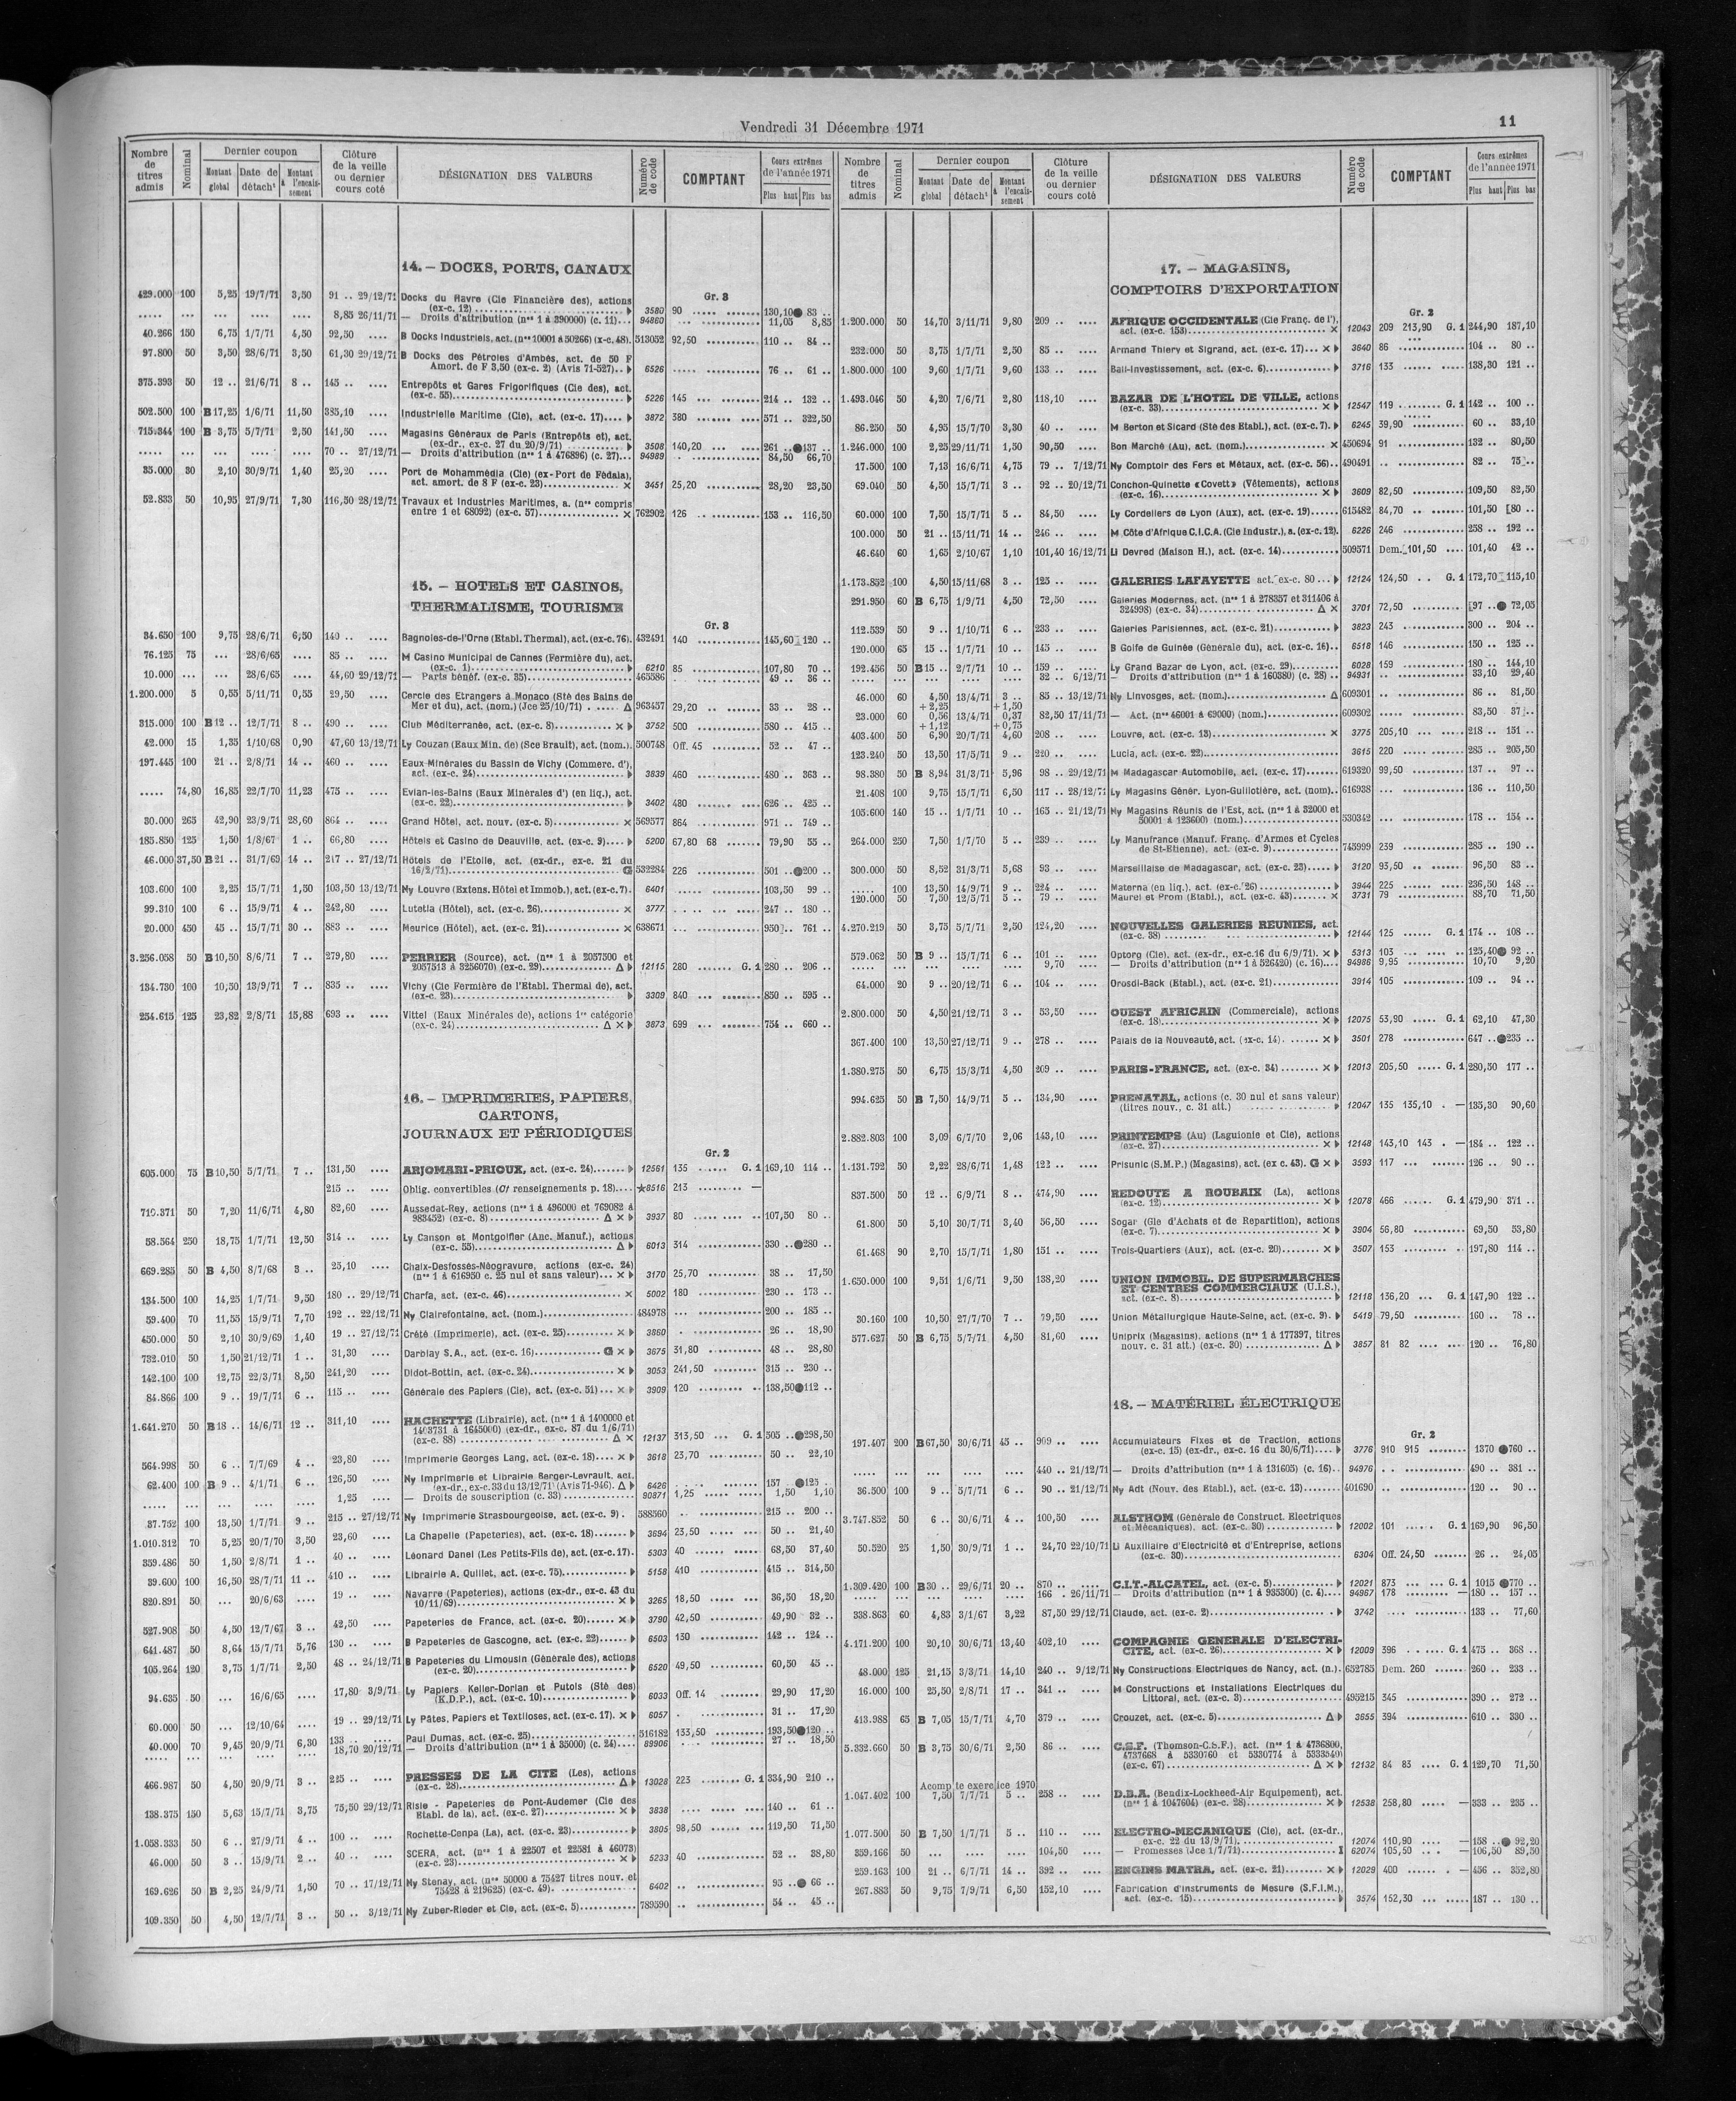 Vendredi 31 Décembre 1971
11
Nombre de titres admis
Nominal
Dernier coupon
Montant global
Date de détach<sup>t</sup>
Montant à l'encaissement
Clôture de la veille ou dernier cours coté
DÉSIGNATION DES VALEURS
Numéro de code
COMPTANT
Cours extrêmes de l'année 1971
Plus haut Plus bas
14. – DOCKS, PORTS, CANAUX
Gr. 3
429.000 100 5,25 19/7/71 3,50 91 .. 29/12/71 Docks du Havre (Cie Financière des), actions (ex-c. 12) 3580 90 130,10 ● 83 ..
..... ... ... .... .... 8,85 26/11/71 — Droits d'attribution (nos 1 à 390000) (c. 11)... 94860 ... 11,05 8,85
40.266 150 6,75 1/7/71 4,50 92,50 .... B Docks Industriels, act. (nos 10001 à 50266) (x-c. 48). 513052 92,50 110 .. 84 ..
97.800 50 3,50 28/6/71 3,50 61,30 29/12/71 B Docks des Pétroles d'Ambès, act. de 50 F
Amort. de F 3,50 (ex-c. 2) (Avis 71-527).. 6526 76 .. 61 ..
375.393 50 12 .. 21/6/71 8 .. 145 .. .... Entrepôts et Gares Frigorifiques (Cie des), act. (ex-c. 55) 5226 145 214 .. 132 ..
502.500 100 B 17,25 1/6/71 11,50 385,10 .... Industrielle Maritime (Cie), act. (ex-c. 17) 3872 380 571 .. 322,50
715.344 100 B 3,75 5/7/71 2,50 141,50 .... Magasins Généraux de Paris (Entrepôts et), act. (ex-dr., ex-c. 27 du 20/9/71) 3508 140,20 261 .. ● 137 ..
..... ... ... .... .... 70 .. 27/12/71 — Droits d'attribution (nos 1 à 476896) (c. 27)... 94989 84,50 66,70
35.000 30 2,10 30/9/71 1,40 25,20 .... Port de Mohammédia (Cie) (ex-Port de Fédala), act. amort. de 8 F (ex-c. 23) × 3451 25,20 28,20 23,50
52.833 50 10,95 27/9/71 7,30 116,50 28/12/71 Travaux et Industries Maritimes, a. (nos compris entre 1 et 68092) (ex-c. 57) × 762902 126 153 .. 116,50
15. – HOTELS ET CASINOS,
THERMALISME, TOURISME
Gr. 3
34.650 100 9,75 28/6/71 6,50 140 .. .... Bagnoles-de-l'Orne (Etabl. Thermal), act. (ex-c. 76). 432491 140 145,60 120 ..
76.125 75 ... 28/6/65 .... 85 .. .... M Casino Municipal de Cannes (Fermière du), act. (ex-c. 1) 6210 85 107,80 70 ..
10.000 ... ... 28/6/65 .... 44,60 29/12/71 — Parts bénéf. (ex-c. 35) 465586 49 .. 36 ..
1.200.000 5 0,55 5/11/71 0,55 29,50 .... Cercle des Etrangers à Monaco (Sté des Bains de Mer et du), act. (nom.) (Jce 25/10/71) Δ 963457 29,20 33 .. 28 ..
315.000 100 B 12 .. 12/7/71 8 .. 490 .. .... Club Méditerranée, act. (ex-c. 8) × 3752 500 580 .. 415 ..
42.000 15 1,35 1/10/68 0,90 47,60 13/12/71 Ly Couzan (Eaux Min. de) (Sce Brault), act. (nom.). 500748 Off. 45 52 .. 47 ..
197.445 100 21 .. 2/8/71 14 .. 460 .. .... Eaux Minérales du Bassin de Vichy (Commerc. d'), act. (ex-c. 24) 3839 460 480 .. 363 ..
..... 74,80 16,85 22/7/70 11,23 475 .. .... Evian-les-Bains (Eaux Minérales d') (en liq.), act. (ex-c. 22) 3402 480 626 .. 425 ..
30.000 265 42,90 23/9/71 28,60 864 .. .... Grand Hôtel, act. nouv. (ex-c. 5) × 569577 864 971 .. 749 ..
185.850 125 1,50 1/8/67 1 .. 66,80 .... Hôtels et Casino de Deauville, act. (ex-c. 9) 5200 67,80 68 79,90 55 ..
46.000 37,50 B 21 .. 31/7/69 14 .. 217 .. 27/12/71 Hôtels de l'Etoile, act. (ex-dr., ex-c. 21 du 16/2/71) G 532284 226 501 .. ● 200 ..
103.600 100 2,25 15/7/71 1,50 103,50 13/12/71 Ny Louvre (Extens. Hôtel et Immob.), act. (ex-c. 7). 6401 103,50 99 ..
99.310 100 6 .. 15/9/71 4 .. 242,80 .... Lutetia (Hôtel), act. (ex-c. 26) × 3777 247 .. 180 ..
20.000 450 45 .. 15/7/71 30 .. 883 .. .... Meurice (Hôtel), act. (ex-c. 21) × 638671 950 .. 761 ..
3.256.058 50 B 10,50 8/6/71 7 .. 279,80 .... PERRIER (Source), act. (nos 1 à 2057500 et 2057513 à 3256070) (ex-c. 29) Δ 12115 280 G. 1 280 .. 206 ..
134.730 100 10,50 13/9/71 7 .. 835 .. .... Vichy (Cie Fermière de l'Etabl. Thermal de), act. (ex-c. 23) 3309 840 850 .. 595 ..
254.615 125 23,82 2/8/71 15,88 693 .. .... Vittel (Eaux Minérales de), actions 1re catégorie (ex-c. 24) Δ × 3873 699 754 .. 660 ..
16. – IMPRIMERIES, PAPIERS,
CARTONS,
JOURNAUX ET PÉRIODIQUES
Gr. 2
605.000 75 B 10,50 5/7/71 7 .. 131,50 .... ARJOMARI-PRIOUX, act. (ex-c. 24) 12561 135 G. 1 169,10 114 ..
215 .. .... Oblig. convertibles (Cf renseignements p. 18).... ★8516 213 —
719.371 50 7,20 11/6/71 4,80 82,60 .... Aussedat-Rey, actions (nos 1 à 496000 et 769082 à 983452) (ex-c. 8) Δ × 3937 80 107,50 80 ..
58.564 250 18,75 1/7/71 12,50 314 .. .... Ly Canson et Montgolfier (Anc. Manuf.), actions (ex-c. 55) Δ 6013 314 330 .. ● 280 ..
669.285 50 B 4,50 8/7/68 3 .. 25,10 .... Chaix-Desfossés-Néogravure, actions (ex-c. 24) (nos 1 à 616950 c. 25 nul et sans valeur)... × 3170 25,70 38 .. 17,50
134.500 100 14,25 1/7/71 9,50 180 .. 29/12/71 Charfa, act. (ex-c. 46) × 5002 180 230 .. 173 ..
59.400 70 11,55 15/9/71 7,70 192 .. 22/12/71 Ny Clairefontaine, act. (nom.) 484978 200 .. 185 ..
450.000 50 2,10 30/9/69 1,40 19 .. 27/12/71 Crété (Imprimerie), act. (ex-c. 25) × 3860 26 .. 18,90
732.010 50 1,50 21/12/71 1 .. 31,30 .... Darblay S.A., act. (ex-c. 16) G × 3675 31,80 48 .. 28,80
142.100 100 12,75 22/3/71 8,50 241,20 .... Didot-Bottin, act. (ex-c. 24) × 3053 241,50 315 .. 230 ..
84.866 100 9 .. 19/7/71 6 .. 115 .. .... Générale des Papiers (Cie), act. (ex-c. 51) × 3909 120 138,50 ● 112 ..
1.641.270 50 B 18 .. 14/6/71 12 .. 311,10 .... HACHETTE (Librairie), act. (nos 1 à 1400000 et 1403731 à 1645000) (ex-dr., ex-c. 87 du 1/6/71) (ex-c. 88) Δ × 12137 313,50 G. 1 505 .. ● 298,50
564.998 50 6 .. 7/7/69 4 .. 23,80 .... Imprimerie Georges Lang, act. (ex-c. 18) × 3618 23,70 50 .. 22,10
62.400 100 B 9 .. 4/1/71 6 .. 126,50 .... Ny Imprimerie et Librairie Berger-Levrault, act. (ex-dr., ex-c. 33 du 13/12/71) (Avis 71-946). Δ 6426 157 .. ● 125 ..
..... ... ... .... .... 1,25 .... — Droits de souscription (c. 33) 90871 1,25 1,50 1,10
37.752 100 13,50 1/7/71 9 .. 215 .. 27/12/71 Ny Imprimerie Strasbourgeoise, act. (ex-c. 9) . 588560 215 .. 200 ..
1.010.312 70 5,25 20/7/70 3,50 23,60 .... La Chapelle (Papeteries), act. (ex-c. 18) 3694 23,50 50 .. 21,40
359.486 50 1,50 2/8/71 1 .. 40 .. .... Léonard Danel (Les Petits-Fils de), act. (ex-c. 17). 5303 40 68,50 37,40
39.600 100 16,50 28/7/71 11 .. 410 .. .... Librairie A. Quillet, act. (ex-c. 75) 5158 410 415 .. 314,50
820.891 50 ... 20/6/63 .... 19 .. .... Navarre (Papeteries), actions (ex-dr., ex-c. 43 du 10/11/69) × 3265 18,50 36,50 18,20
527.908 50 4,50 12/7/67 3 .. 42,50 .... Papeteries de France, act. (ex-c. 20) × 3790 42,50 49,90 32 ..
641.487 50 8,64 15/7/71 5,76 130 .. .... B Papeteries de Gascogne, act. (ex-c. 22) 6503 130 142 .. 124 ..
105.264 120 3,75 1/7/71 2,50 48 .. 24/12/71 B Papeteries du Limousin (Générale des), actions (ex-c. 20) 6520 49,50 60,50 45 ..
94.635 50 ... 16/6/65 .... 17,80 3/9/71 Ly Papiers Keller-Dorian et Putois (Sté des) (K.D.P.), act. (ex-c. 10) 6033 Off. 14 29,90 17,20
60.000 50 ... 12/10/64 .... 19 .. 29/12/71 Ly Pâtes, Papiers et Textiloses, act. (ex-c. 17). × 6057 31 .. 17,20
40.000 70 9,45 20/9/71 6,30 133 .. .... Paul Dumas, act. (ex-c. 25) 516182 133,50 193,50 ● 120 ..
..... ... ... .... .... 18,70 20/12/71 — Droits d'attribution (nos 1 à 35000) (c. 24).... 89906 27 .. 18,50
466.987 50 4,50 20/9/71 3 .. 225 .. .... PRESSES DE LA CITE (Les), actions (ex-c. 28) Δ 13028 223 G. 1 334,90 210 ..
138.375 150 5,63 15/7/71 3,75 75,50 29/12/71 Risle - Papeteries de Pont-Audemer (Cie des Etabl. de la), act. (ex-c. 27) × 3838 140 .. 61 ..
1.058.333 50 6 .. 27/9/71 4 .. 100 .. .... Rochette-Cenpa (La), act. (ex-c. 23) 3805 98,50 119,50 71,50
46.000 50 3 .. 15/9/71 2 .. 40 .. .... SCERA, act. (nos 1 à 22507 et 22581 à 46073) (ex-c. 23) × 5233 40 52 .. 38,80
169.626 50 B 2,25 24/9/71 1,50 70 .. 17/12/71 Ny Stenay, act. (nos 50000 à 75427 titres nouv. et 75428 à 219625) (ex-c. 49). 6402 95 .. ● 66 ..
109.350 50 4,50 12/7/71 3 .. 50 .. 3/12/71 Ny Zuber-Rieder et Cie, act. (ex-c. 5) 789590 54 .. 45 ..
Nombre de titres admis
Nominal
Dernier coupon
Montant global
Date de détach<sup>t</sup>
Montant à l'encaissement
Clôture de la veille ou dernier cours coté
DÉSIGNATION DES VALEURS
Numéro de code
COMPTANT
Cours extrêmes de l'année 1971
Plus haut Plus bas
17. – MAGASINS,
COMPTOIRS D'EXPORTATION
Gr. 2
1.200.000 50 14,70 3/11/71 9,80 209 .. .... AFRIQUE OCCIDENTALE (Cie Franç. de l'), act. (ex-c. 153) × 12043 209 213,90 G. 1 244,90 187,10
232.000 50 3,75 1/7/71 2,50 85 .. .... Armand Thiery et Sigrand, act. (ex-c. 17)... × 3640 86 104 .. 80 ..
1.800.000 100 9,60 1/7/71 9,60 133 .. .... Bail-Investissement, act. (ex-c. 6) 3716 133 138,30 121 ..
1.493.046 50 4,20 7/6/71 2,80 118,10 .... BAZAR DE L'HOTEL DE VILLE, actions (ex-c. 33) × 12547 119 G. 1 142 .. 100 ..
86.250 50 4,95 15/7/70 3,30 40 .. .... M Berton et Sicard (Sté des Etabl.), act. (ex-c. 7). 6245 39,90 60 .. 33,10
1.246.000 100 2,25 29/11/71 1,50 90,50 .... Bon Marché (Au), act. (nom.) × 450694 91 132 .. 80,50
17.500 100 7,13 16/6/71 4,75 79 .. 7/12/71 Ny Comptoir des Fers et Métaux, act. (ex-c. 56).. 490491 82 .. 75 ..
69.040 50 4,50 15/7/71 3 .. 92 .. 20/12/71 Conchon-Quinette «Covett» (Vêtements), actions (ex-c. 16) × 3609 82,50 109,50 82,50
60.000 100 7,50 15/7/71 5 .. 84,50 .... Ly Cordeliers de Lyon (Aux), act. (ex-c. 19) 615482 84,70 101,50 80 ..
100.000 50 21 .. 15/11/71 14 .. 246 .. .... M Côte d'Afrique C.I.C.A. (Cie Industr.), a. (ex-c. 12). 6226 246 258 .. 192 ..
46.640 60 1,65 2/10/67 1,10 101,40 16/12/71 Li Devred (Maison H.), act. (ex-c. 14) 509571 Dem. 101,50 101,40 42 ..
1.173.852 100 4,50 15/11/68 3 .. 125 .. .... GALERIES LAFAYETTE act. ex-c. 80 12124 124,50 G. 1 172,70 115,10
291.950 60 B 6,75 1/9/71 4,50 72,50 .... Galeries Modernes, act. (nos 1 à 278357 et 311406 à 324998) (ex-c. 34) Δ × 3701 72,50 97 .. ● 72,05
112.539 50 9 .. 1/10/71 6 .. 233 .. .... Galeries Parisiennes, act. (ex-c. 21) 3823 243 300 .. 204 ..
120.000 65 15 .. 1/7/71 10 .. 145 .. .... B Golfe de Guinée (Générale du), act. (ex-c. 16).. 6518 146 150 .. 125 ..
192.456 50 B 15 .. 2/7/71 10 .. 159 .. .... Ly Grand Bazar de Lyon, act. (ex-c. 29) 6028 159 180 .. 144,10
..... ... ... .... .... 32 .. 6/12/71 — Droits d'attribution (nos 1 à 160380) (c. 28) .. 94931 33,10 29,40
46.000 60 4,50 13/4/71 3 .. 85 .. 13/12/71 Ny Linvosges, act. (nom.) Δ 609301 86 .. 81,50
+ 2,25 + 1,50
23.000 60 0,56 13/4/71 0,37 82,50 17/11/71 — Act. (nos 46001 à 69000) (nom.) 609302 83,50 37 ..
+ 1,12 + 0,75
403.400 50 6,90 20/7/71 4,60 208 .. .... Louvre, act. (ex-c. 13) × 3775 205,10 218 .. 151 ..
123.240 50 13,50 17/5/71 9 .. 220 .. .... Lucia, act. (ex-c. 22) 3615 220 285 .. 205,50
98.380 50 B 8,94 31/3/71 5,96 98 .. 29/12/71 M Madagascar Automobile, act. (ex-c. 17) 619320 99,50 137 .. 97 ..
21.408 100 9,75 15/7/71 6,50 117 .. 28/12/71 Ly Magasins Génér. Lyon-Guillotière, act. (nom).. 616938 136 .. 110,50
105.600 140 15 .. 1/7/71 10 .. 165 .. 21/12/71 Ny Magasins Réunis de l'Est, act. (nos 1 à 32000 et 50001 à 123600) (nom.) 530342 178 .. 154 ..
264.000 250 7,50 1/7/70 5 .. 239 .. .... Ly Manufrance (Manuf. Franç. d'Armes et Cycles de St-Etienne), act. (ex-c. 9) 745999 239 285 .. 190 ..
300.000 50 8,52 31/3/71 5,68 93 .. .... Marseillaise de Madagascar, act. (ex-c. 23) 3120 93,50 96,50 83 ..
..... 100 13,50 14/9/71 9 .. 224 .. .... Materna (en liq.), act. (ex-c. 26) 3944 225 236,50 148 ..
120.000 50 7,50 12/5/71 5 .. 79 .. .... Maurel et Prom (Etabl.), act. (ex-c. 43) × 3731 79 88,70 71,50
4.270.219 50 3,75 5/7/71 2,50 124,20 .... NOUVELLES GALERIES REUNIES, act. (ex-c. 38) 12144 125 G. 1 174 .. 108 ..
579.062 50 B 9 .. 15/7/71 6 .. 101 .. .... Optorg (Cie), act. (ex-dr., ex-c.16 du 6/9/71). × 5313 103 125,40 ● 92 ..
..... ... ... .... .... 9,70 .... — Droits d'attribution (nos 1 à 526420) (c. 16).... 94986 9,95 10,70 9,20
64.000 20 9 .. 20/12/71 6 .. 104 .. .... Orosdi-Back (Etabl.), act. (ex-c. 21) 3914 105 109 .. 94 ..
2.800.000 50 4,50 21/12/71 3 .. 53,50 .... OUEST AFRICAIN (Commerciale), actions (ex-c. 18) × 12075 53,90 G. 1 62,10 47,30
367.400 100 13,50 27/12/71 9 .. 278 .. .... Palais de la Nouveauté, act. (ex-c. 14) × 3501 278 647 .. ● 235 ..
1.380.275 50 6,75 15/3/71 4,50 209 .. .... PARIS-FRANCE, act. (ex-c. 34) × 12013 205,50 G. 1 280,50 177 ..
994.625 50 B 7,50 14/9/71 5 .. 134,90 .... PRENATAL, actions (c. 30 nul et sans valeur) (titres nouv., c. 31 att.) 12047 135 135,10 . — 135,30 90,60
2.882.803 100 3,09 6/7/70 2,06 143,10 .... PRINTEMPS (Au) (Laguionie et Cie), actions (ex-c. 27) × 12148 143,10 143 . — 184 .. 122 ..
1.131.792 50 2,22 28/6/71 1,48 122 .. .... Prisunic (S.M.P.) (Magasins), act. (ex c. 43). G × 3593 117 126 .. 90 ..
837.500 50 12 .. 6/9/71 8 .. 474,90 .... REDOUTE A ROUBAIX (La), actions (ex-c. 12) × 12078 466 G. 1 479,90 371 ..
61.800 50 5,10 30/7/71 3,40 56,50 .... Sogar (Gle d'Achats et de Repartition), actions (ex-c. 7) × 3904 56,80 69,50 53,80
61.468 90 2,70 15/7/71 1,80 151 .. .... Trois-Quartiers (Aux), act. (ex-c. 20) × 3507 153 197,80 114 ..
1.650.000 100 9,51 1/6/71 9,50 138,20 .... UNION IMMOBIL. DE SUPERMARCHES ET CENTRES COMMERCIAUX (U.I.S.), act. (ex-c. 8) 12118 136,20 G. 1 147,90 122 ..
30.160 100 10,50 27/7/70 7 .. 79,50 .... Union Métallurgique Haute-Seine, act. (ex-c. 9). 5419 79,50 160 .. 78 ..
577.627 50 B 6,75 5/7/71 4,50 81,60 .... Uniprix (Magasins), actions (nos 1 à 177397, titres nouv. c. 31 att.) (ex-c. 30) Δ 3857 81 82 120 .. 76,80
18. – MATÉRIEL ÉLECTRIQUE
Gr. 2
197.407 200 B 67,50 30/6/71 45 .. 909 .. .... Accumulateurs Fixes et de Traction, actions (ex-c. 15) (ex-dr., ex-c. 16 du 30/6/71) 3776 910 915 1370 ● 760 ..
..... ... ... .... .... 440 .. 21/12/71 — Droits d'attribution (nos 1 à 131605) (c. 16).. 94976 490 .. 381 ..
36.500 100 9 .. 5/7/71 6 .. 90 .. 21/12/71 Ny Adt (Nouv. des Etabl.), act. (ex-c. 13) 401690 120 .. 90 ..
3.747.852 50 6 .. 30/6/71 4 .. 100,50 .... ALSTHOM (Générale de Construct. Electriques et Mécaniques). act. (ex-c. 30) 12002 101 G. 1 169,90 96,50
50.520 25 1,50 30/9/71 1 .. 24,70 22/10/71 Li Auxiliaire d'Electricité et d'Entreprise, actions (ex-c. 30) 6304 Off. 24,50 26 .. 24,05
1.309.420 100 B 30 .. 29/6/71 20 .. 870 .. .... C.I.T.-ALCATEL, act. (ex-c. 5) 12021 873 G. 1 1015 ● 770 ..
..... ... ... .... .... 166 . 26/11/71 — Droits d'attribution (nos 1 à 935300) (c. 4).... 94967 178 — 180 .. 157 ..
338.863 60 4,83 3/1/67 3,22 87,50 29/12/71 Claude, act. (ex-c. 2) 3742 133 .. 77,60
4.171.200 100 20,10 30/6/71 13,40 402,10 .... COMPAGNIE GENERALE D'ELECTRICITE, act. (ex-c. 26) × 12009 396 G. 1 475 .. 368 ..
48.000 125 21,15 3/3/71 14,10 240 .. 9/12/71 Ny Constructions Electriques de Nancy, act. (n.). 652785 Dem. 260 260 .. 233 ..
16.000 100 25,50 2/8/71 17 .. 341 .. .... M Constructions et Installations Electriques du Littoral, act. (ex-c. 3) 495215 345 390 .. 272 ..
413.988 65 B 7,05 15/7/71 4,70 379 .. .... Crouzet, act. (ex-c. 5) Δ 3655 394 610 .. 330 ..
5.332.660 50 B 3,75 30/6/71 2,50 86 .. .... C.S.F. (Thomson-C.S.F.), act. (nos 1 à 4736800, 4737668 à 5330760 et 5330774 à 5333540) (ex-c. 67) Δ × 12132 84 83 G. 1 129,70 71,50
Acompte exercice 1970
1.047.402 100 7,50 7/7/71 5 .. 258 .. .... D.B.A. (Bendix-Lockheed-Air Equipement), act. (nos 1 à 1047604) (ex-c. 28) × 12538 258,80 — 333 .. 235 ..
1.077.500 50 B 7,50 1/7/71 5 .. 110 .. .... ELECTRO-MECANIQUE (Cie), act. (ex-dr., ex-c. 22 du 13/9/71) 12074 110,90 — 158 .. ● 92,20
359.166 50 ... .... .... 104,50 .... — Promesses (Jce 1/7/71) I 62074 105,50 — 106,50 89,50
259.163 100 21 .. 6/7/71 14 .. 392 .. .... ENGINS MATRA, act. (ex-c. 21) × 12029 400 — 456 .. 352,80
267.883 50 9,75 7/9/71 6,50 152,10 .... Fabrication d'Instruments de Mesure (S.F.I.M.), act. (ex-c. 15) 3574 152,30 187 .. 130 ..